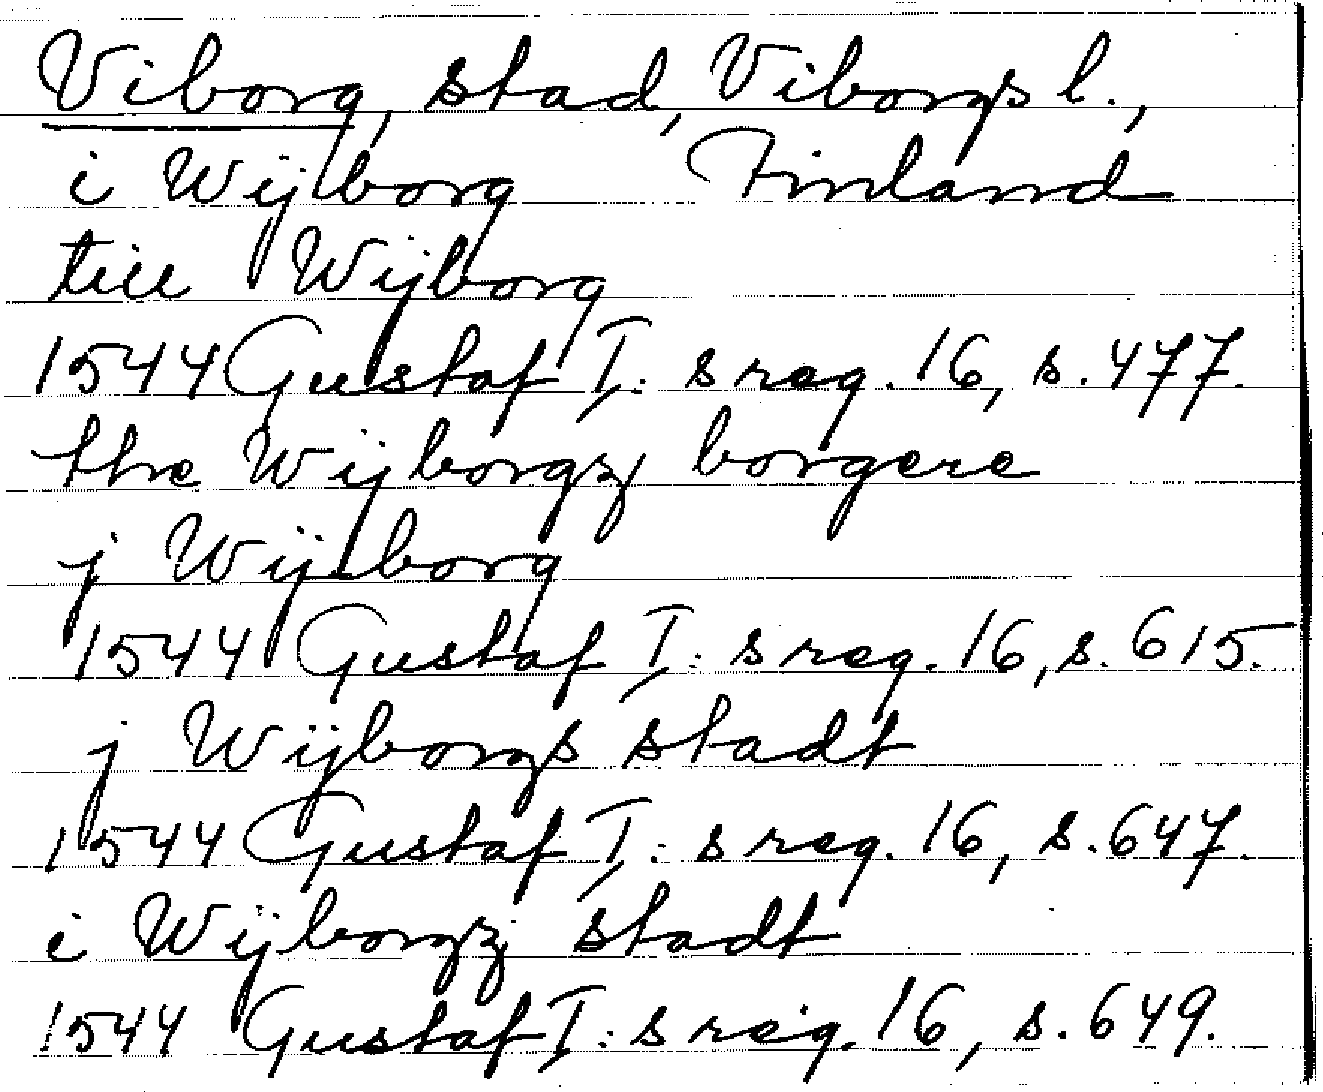 Viborg, stad, Viborgs l.,
i Wijborg Finland
till Wijborg
1544 Gustaf I:s reg. 16, s. 477.
the Wijborgz borgere
j Wijborg
1544 Gustaf I:s reg. 16, s. 615.
j Wijborgs stadt
1544 Gustaf I:s reg. 16, s. 647.
i Wijborgz stadt
1544 Gustaf I:s reg. 16, s. 649.